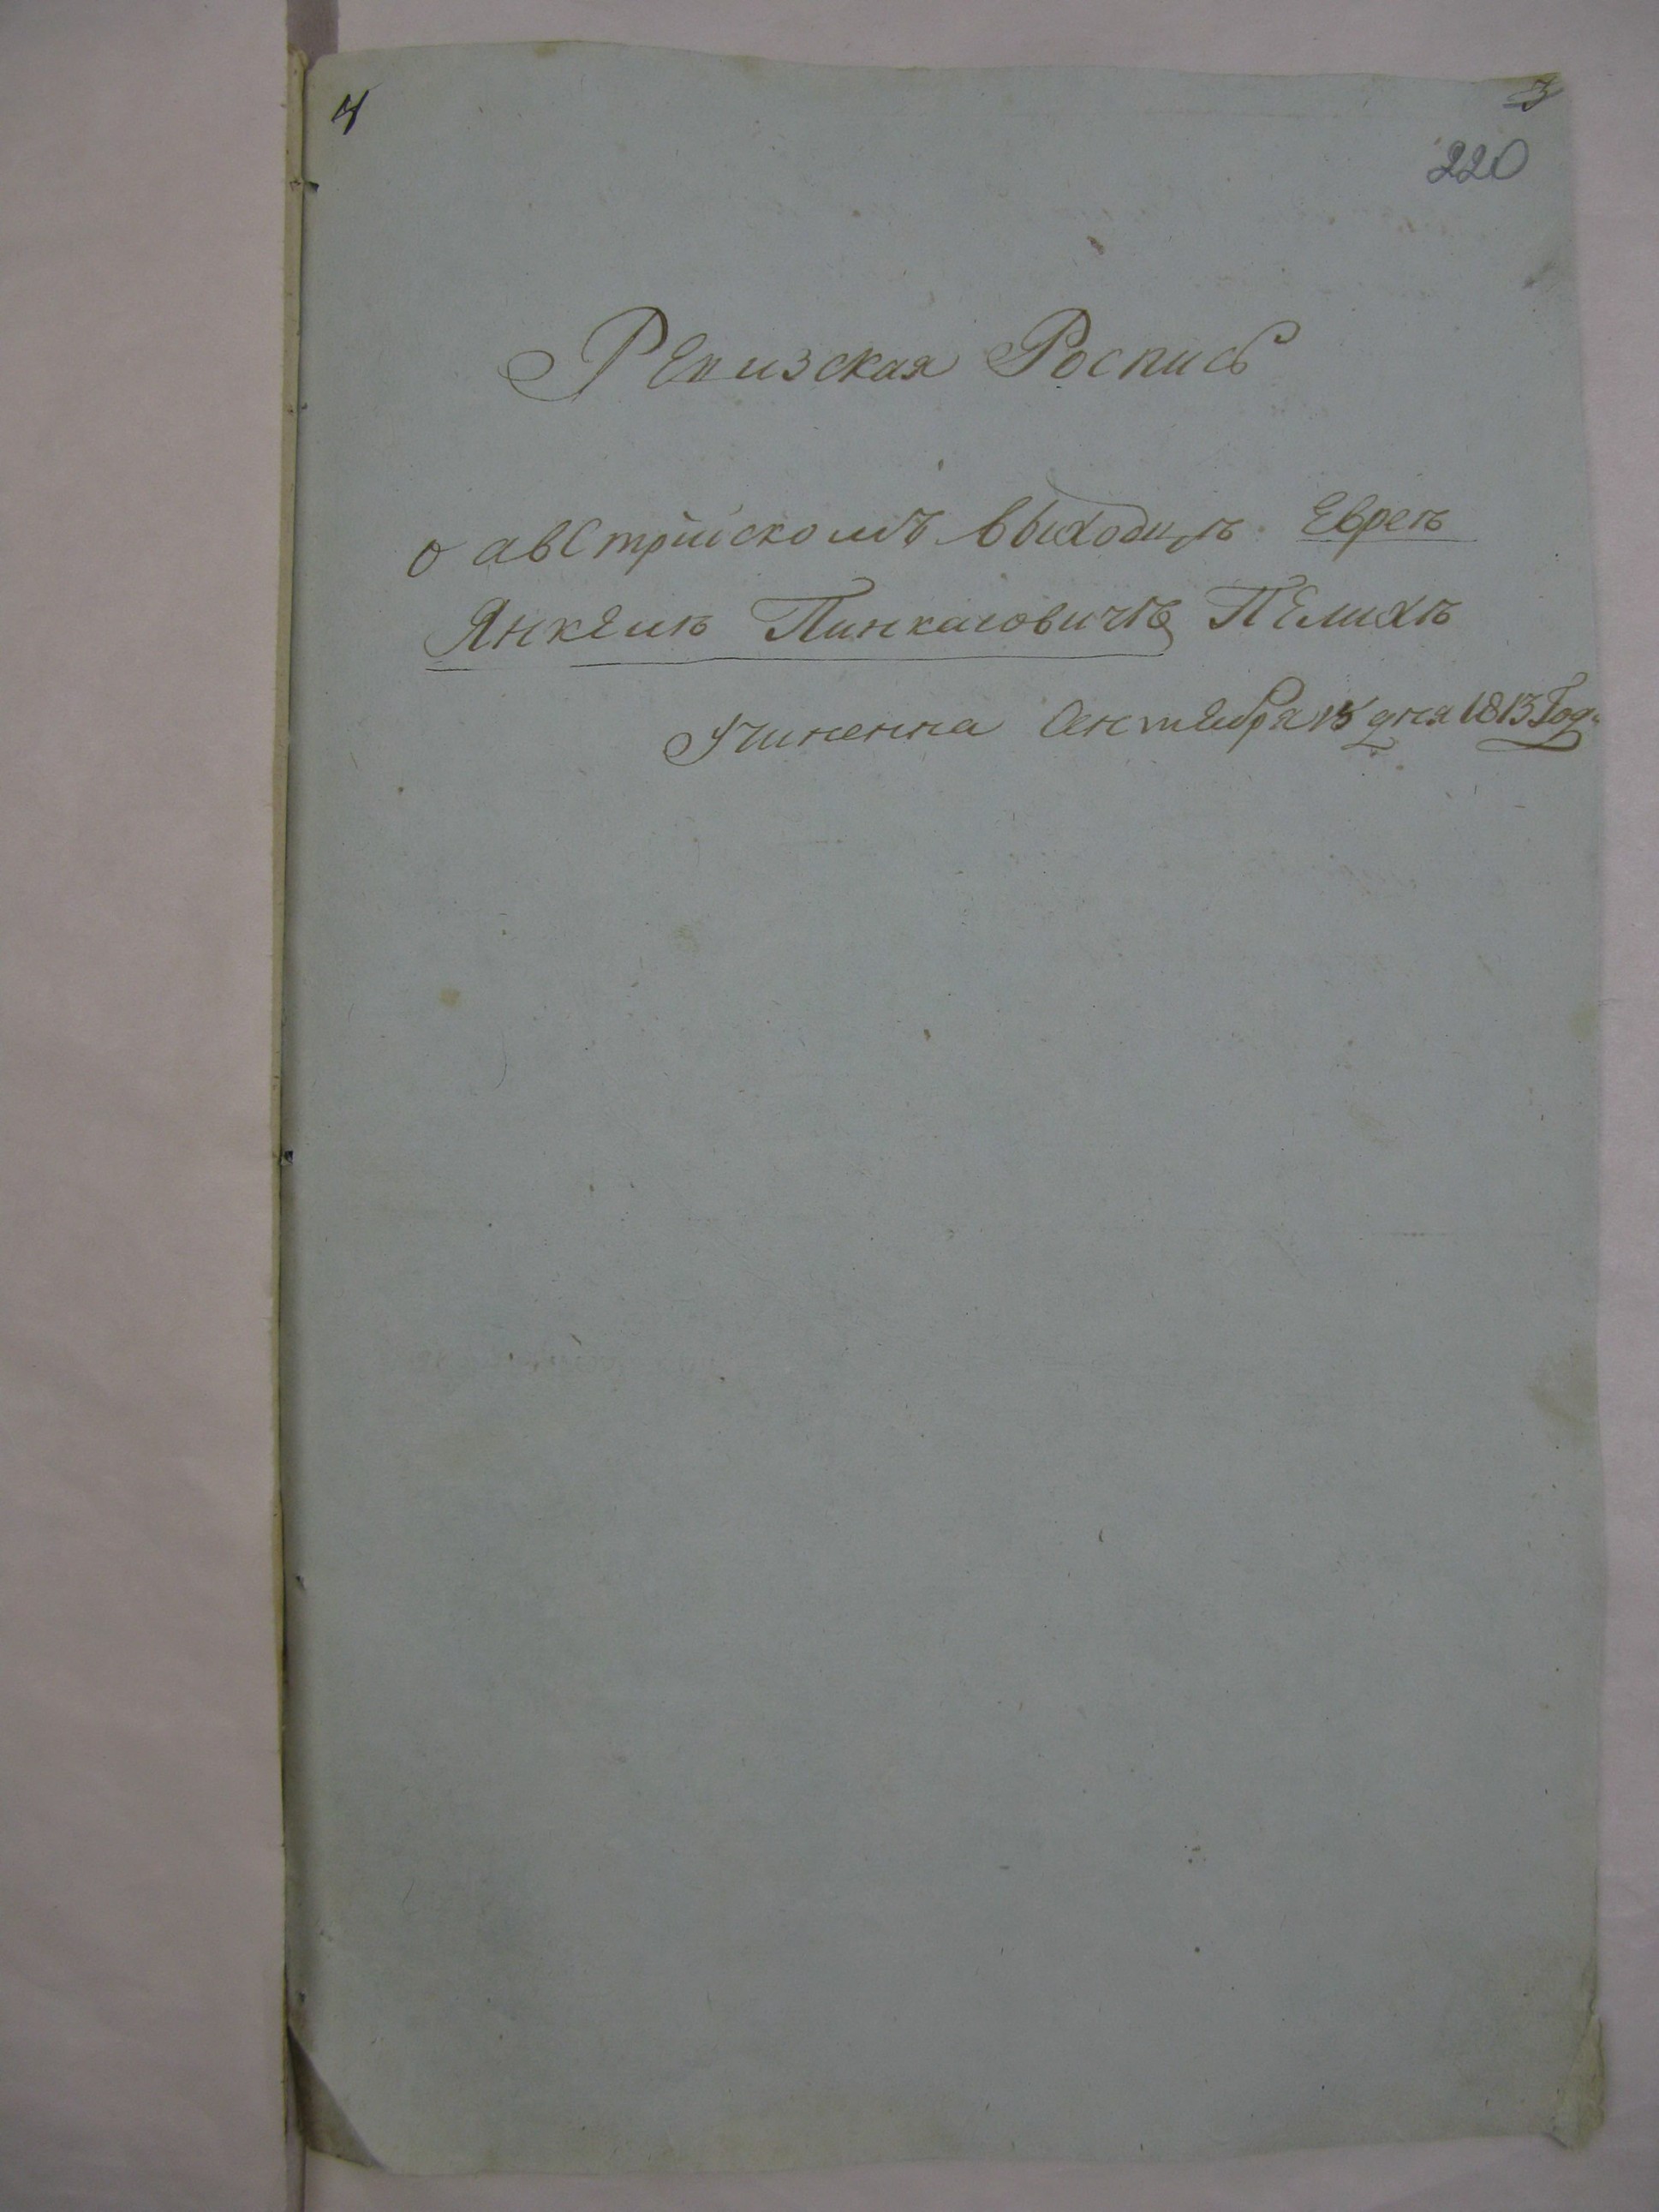 4
3
220
Ревизская Роспись
о австрийскомъ выходцѣ Еврей
Янкелѣ Пинкасовичѣ Пелихѣ
Учиненна Сентября 15 дня 1813 Года